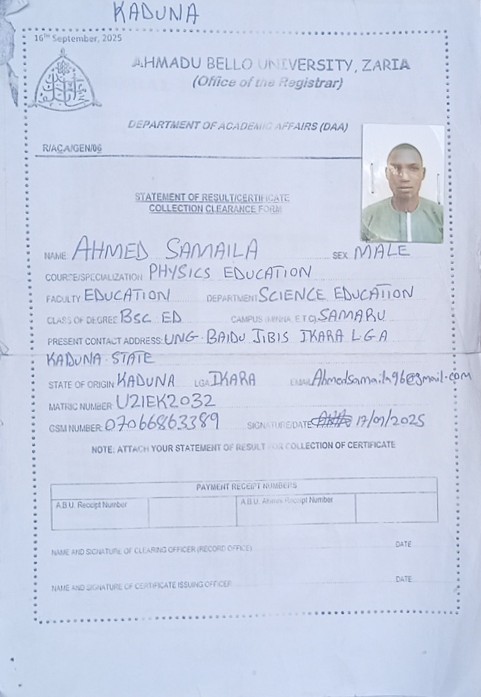 KADUNA
16th September, 2025
AHMADU BELLO UNIVERSITY, ZARIA
(Office of the Registrar)
DEPARTMENT OF ACADEMIC AFFAIRS (DAA)
R/ACA/GEN/06
STATEMENT OF RESULT/CERTIFICATE
COLLECTION CLEARANCE FORM
NAME: AHMED SAMAILA SEX: MALE
COURSE/SPECIALIZATION: PHYSICS EDUCATION
FACULTY: EDUCATION DEPARTMENT: SCIENCE EDUCATION
CLASS OF DEGREE: BSC ED CAMPUS E.T.C): SAMARU
PRESENT CONTACT ADDRESS: UNG. BAIDU JIBIS IKARA L.G.A
KADUNA STATE
STATE OF ORIGIN: KADUNA LGA: IKARA EMAIL: Ahmedsamaila96@gmail.com
MATRIC NUMBER: U21EK2032
GSM NUMBER: 07066863389 SIGNATURE/DATE: 17/09/2025
NOTE: ATTACH YOUR STATEMENT OF RESULT FOR COLLECTION OF CERTIFICATE
PAYMENT RECEIPT NUMBERS
A.B.U. Receipt Number A.B.U. Receipt Number
NAME AND SIGNATURE OF CLEARING OFFICER (RECORD OFFICE) DATE
NAME AND SIGNATURE OF CERTIFICATE ISSUING OFFICER DATE